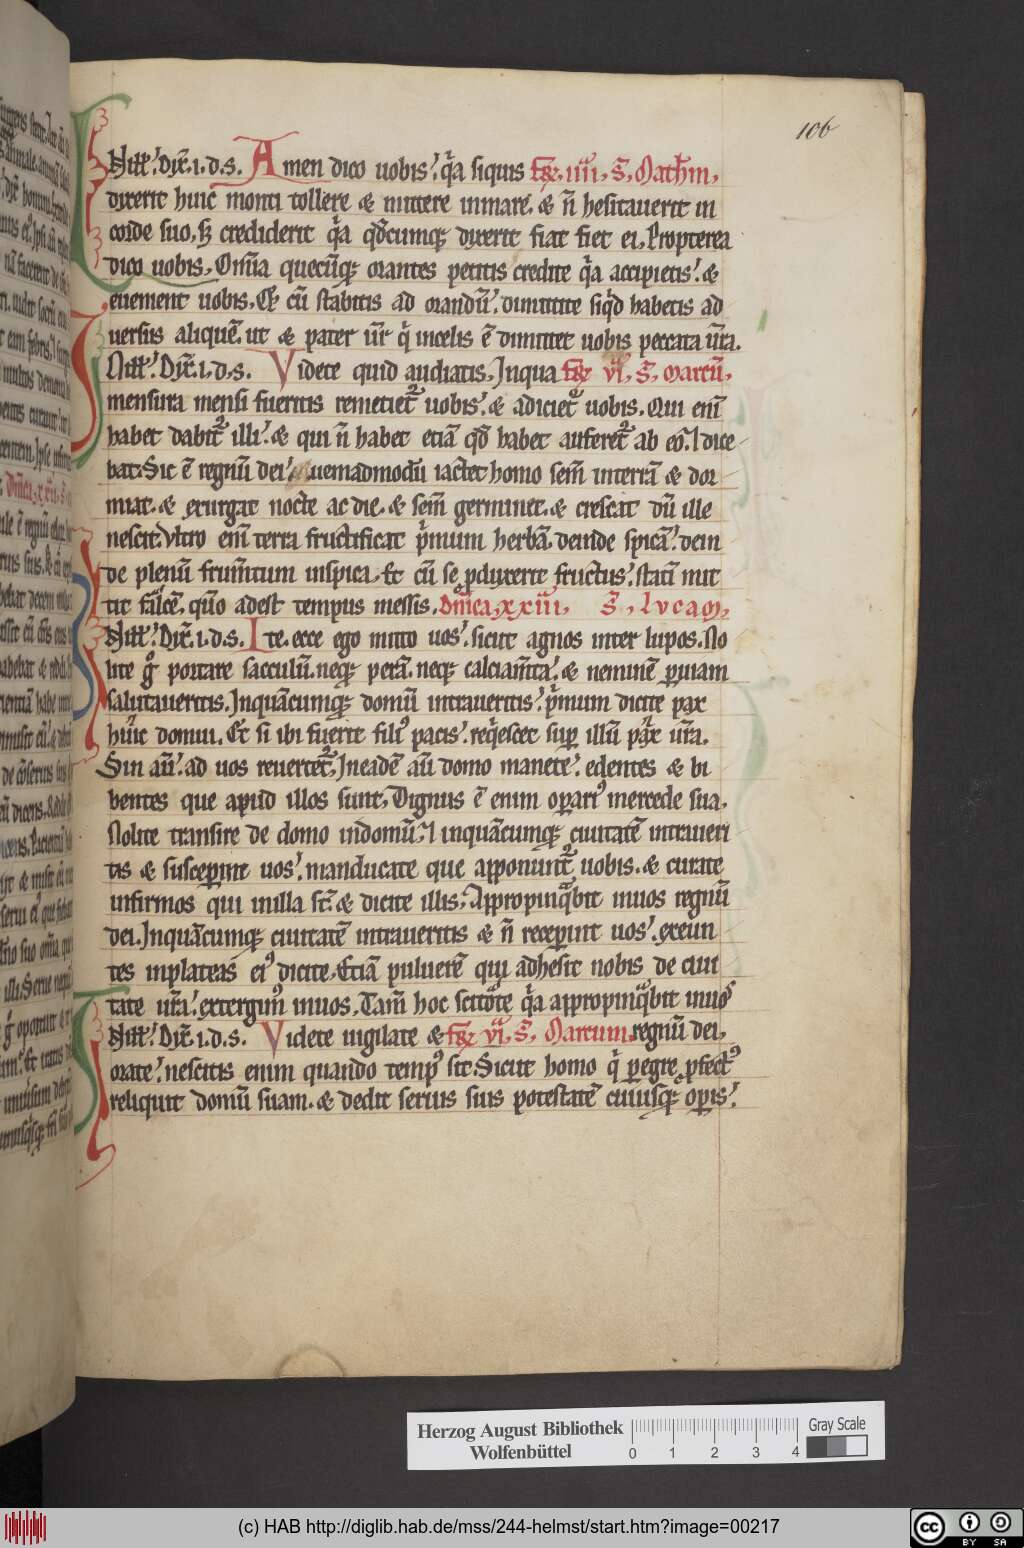 106
IN ill'. Dix̄. i. d. s. Amen dico uobis. q̄a siquis fr̄a. iiii. S. Math̄m.
dixerit huic monti tollere & mittere in mare. & n̄ hesitauerit in
corde suo. sꝫ crediderit q̄a qd̄cumqꝫ dixerit fiat fiet ei. Propterea
dico uobis. Om̄ia quecūqꝫ orantes petitis credite q̄a accipietis. &
euenient uobis. Et cū stabitis ad orandū. dimittite siqd habetis ad
uersus aliquē. ut & pater ur̄ q' in celis ē dimittet uobis peccata ur̄a.
IN ill'. Dix̄. i. d. s. Videte quid audiatis. In qua fr̄a vi. S. marcū.
mensura mensi fueritis remetiet᷑ uobis. & adiciet᷑ uobis. Qui eni᷑
habet dabit᷑ illi. & qui n̄ habet etiā qd̄ habet auferet᷑ ab eo. Et dice
bat. Sic ē regnū dei. Quemadmodū iactet homo sem̄ in terrā & dor
miat. & exurgat nocte ac die. & sem̄ germinet. & crescat dū ille
nescit. Vltro eni᷑ terra fructificat p'mum herbā. deinde spicā. dein
de plenū frum̄tum in spica. Et cū se ꝓduxerit fructus. statī mit
tit falcē. qm̄o adest tempus messis. Dn̄ica. xxiii. S. Lucam.
IN ill'. Dix̄. i. d. s. Ite. ecce ego mitto uos. sicut agnos inter lupos. No
lite g° portare sacculū. neqꝫ perā. neqꝫ calciam̄ta. & neminē ꝑ uiam
salutaueritis. In quācumqꝫ domū intraueritis. p'mum dicite pax
huic domui. Et si ibi fuerit filiꝰ pacis. reqescet suꝑ illū pax ur̄a.
Sin aū. ad uos reuertet᷑. In eadē aū domo manete. edentes & bi
bentes que apud illos sunt. Dignus ē enim oꝑariꝰ mercede sua.
Nolite transire de domo in domū. Et in quācumqꝫ ciuitatē intraueri
tis & susceꝑint uos. manducate que apponunt᷑ uobis. & curate
infirmos qui in illa st̄. & dicite illis. Appropinqabit in uos regnū
dei. In quācumqꝫ ciuitatē intraueritis & n̄ receꝑint uos. exeun
tes in plateas eiꝰ dicite. Etiā puluerē qui adhesit nobis de ciui
tate ur̄a. extergimꝰ in uos. Tam̄ hoc scitote q̄a appropinqabit in uos
IN ill'. Dix̄. i. d. s. Videte uigilate & fr̄a vi. S. Marcum. regnū dei.
orate. nescitis enim quando tempꝰ sit. Sicut homo q' ꝑegre ꝓfectꝰ
reliquit domū suam. & dedit seruis suis potestatē cuiusqꝫ oꝑis.
Herzog August Bibliothek
Wolfenbüttel
0 1 2 3 4
Gray Scale
(c) HAB http://diglib.hab.de/mss/244-helmst/start.htm?image=00217
CC BY SA